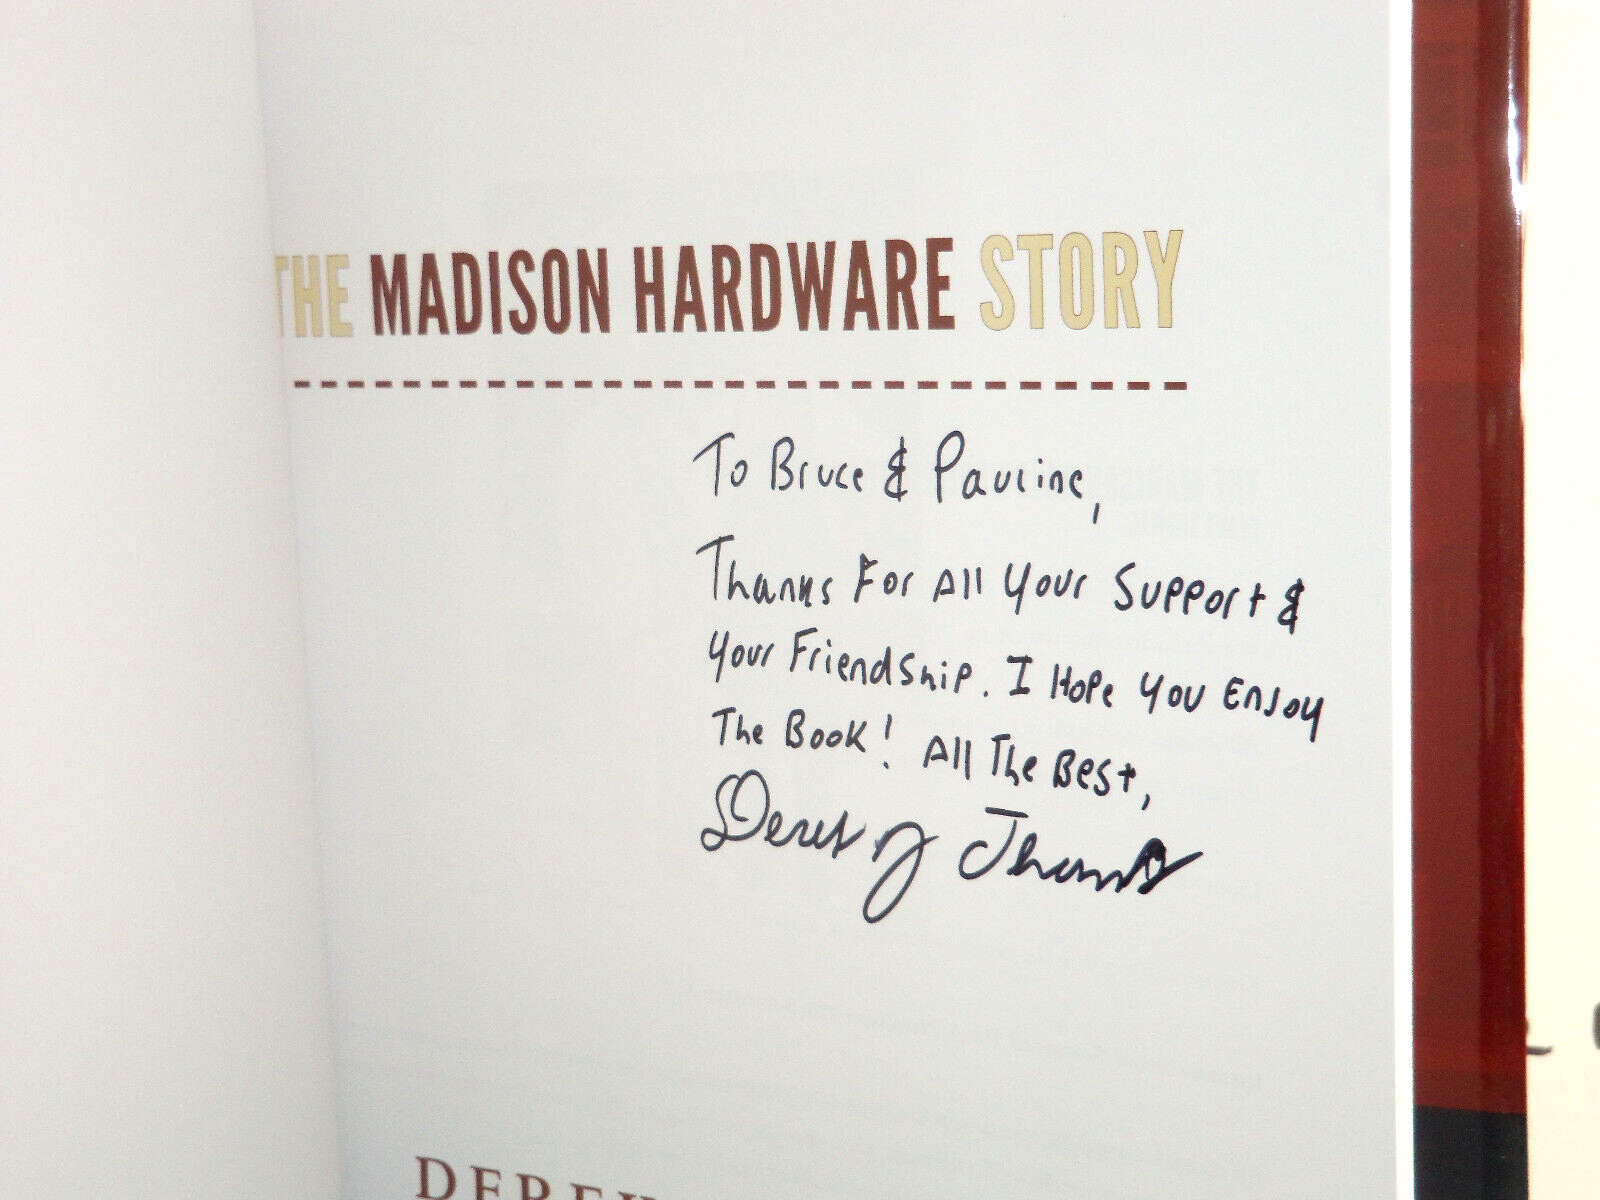 THE MADISON HARDWARE STORY
To Bruce & Pauline,
Thanks For All Your Support &
Your Friendship. I Hope You Enjoy
The Book! All The Best,
Derek J Thomas
DEREK